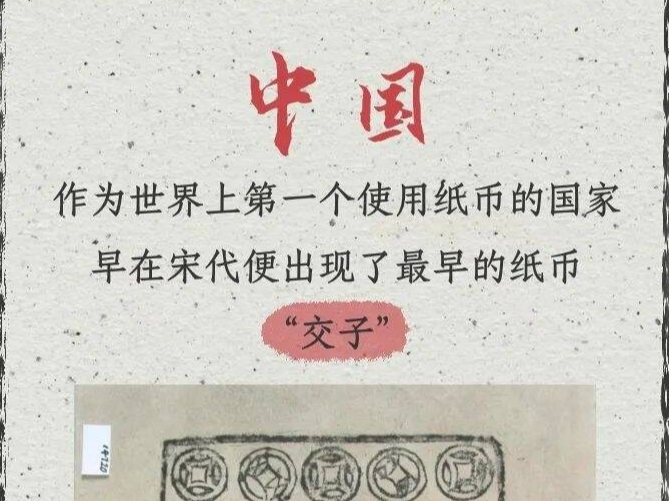 中国
作为世界上第一个使用纸币的国家
早在宋代便出现了最早的纸币
“交子”